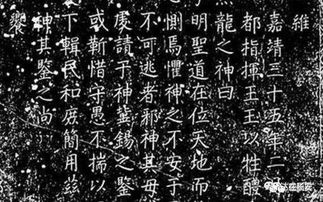 維
嘉靖三十五年二
都指揮王玉以牲醴
龍之神曰
明聖道在位天地而
惻焉懼神之不安于
不可逃者邪神其毋
虔請于神冀錫之鑒
或靳惜守愚不揣以
下輯民和居簡用茲
神其鑒之尚
饗